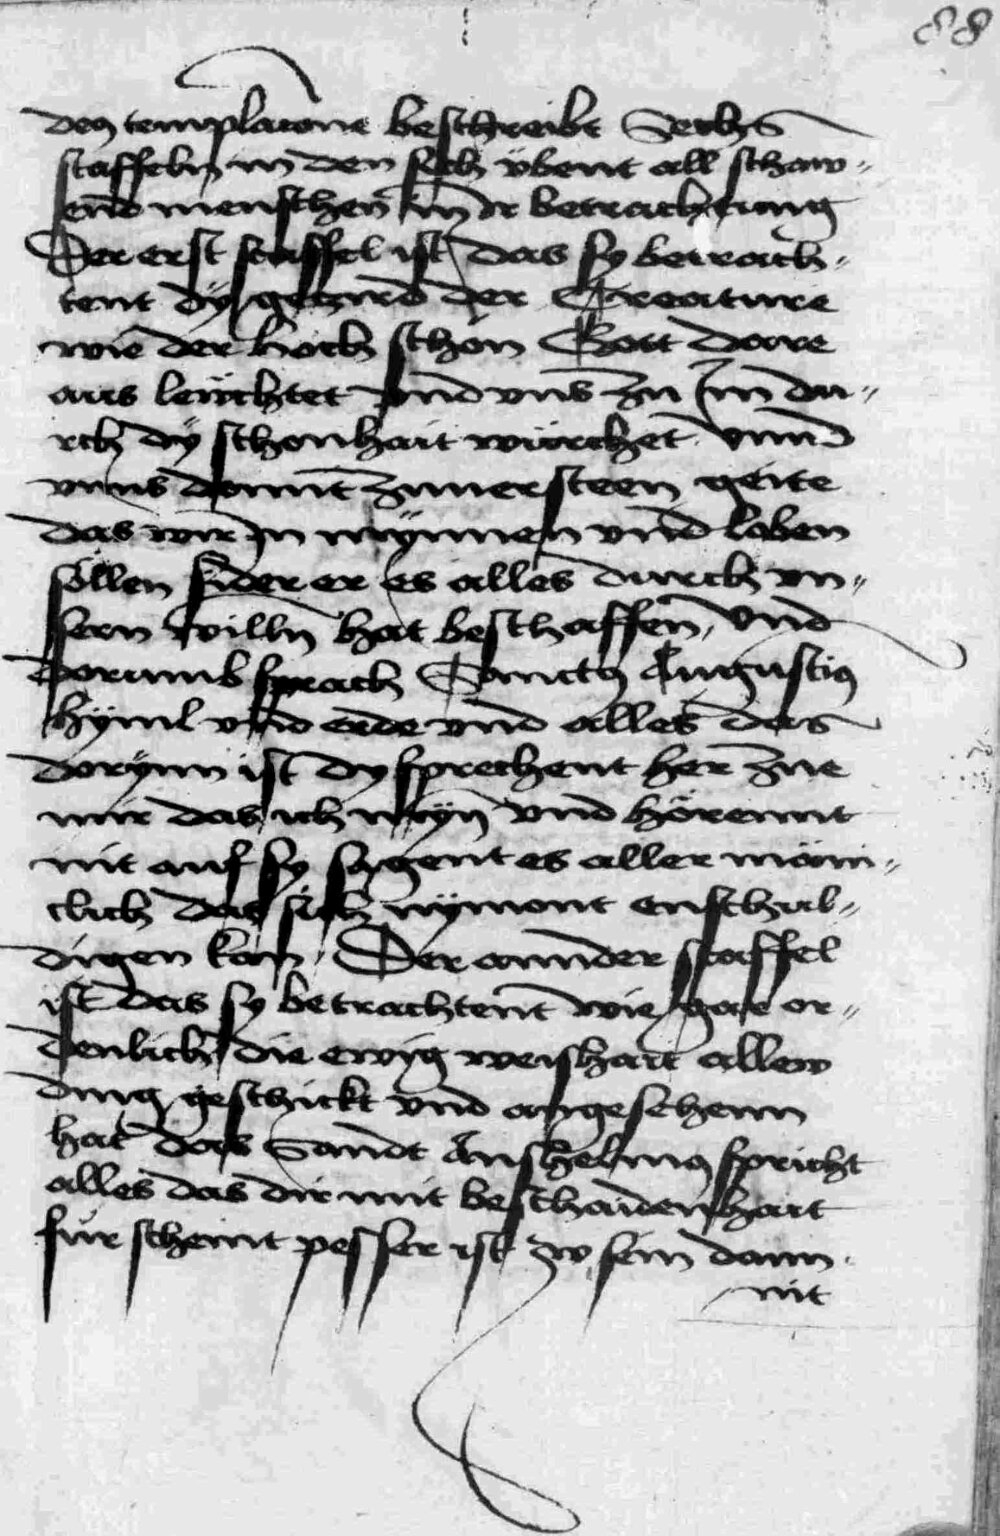 88
den templacone beschreibt Sechs
staffeln in den sich übent all schaw-
end menschen in dr betrachtung
Der erst staffel ist das sy betrach-
tent dy gezird der Creature
wie der hoch schon Gott dare
aus leuchtet vnd vns zu Im du-
rch dÿ schonhait würcket vnnd
vnns domit zuuersteen geite
das wir in mÿnnen vnd loben
söllen sider er es alles durch vn-
sern willn hat beschaffen, vnd
dorumb sprach Sanctus Augustins
hyml vnd erde vnd alles das
dorÿnn ist dy sprechent her zue
mir das ich mÿn vnd hörennt
nit auf sy sagent es aller mäni-
clich das sich nÿmont enschul-
digen kan. Der annder staffel
ist das sy betrachtent wie gare or-
denlich die ewig weishait allew
ding geschickt vnd angesehenn
hat das Sandt Anshelmus spricht
alles das dir mit beschaidenhait
für scheint pesser ist zw sein dann
nit